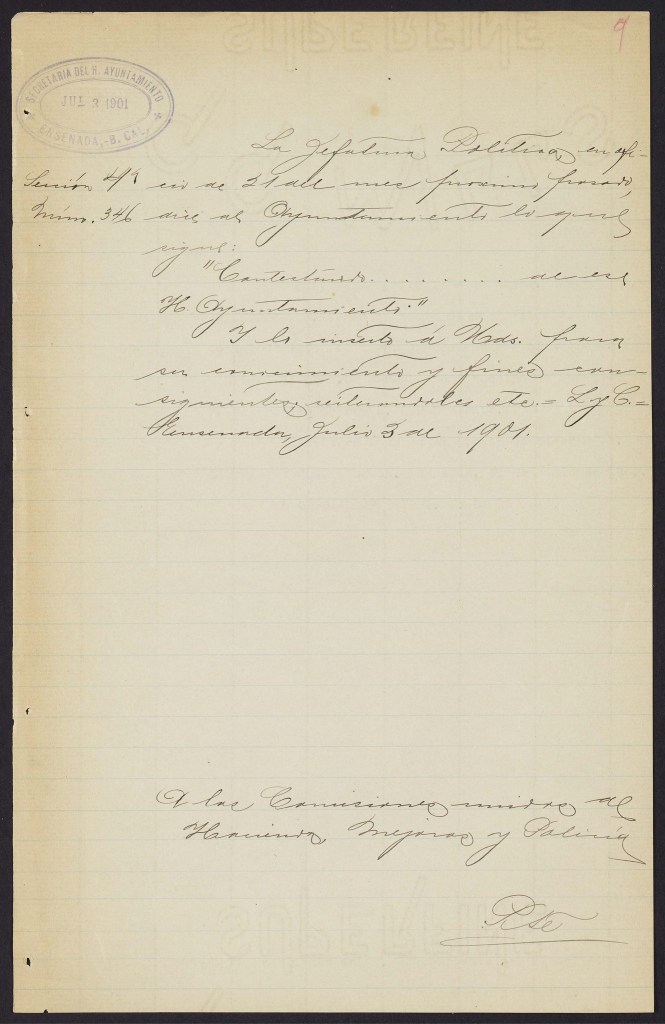 9
SECRETARIA DEL H. AYUNTAMIENTO
JUL 3 1901
ENSENADA,-B. CAL.
La Jefatura Política, en ofi-
Sección 4ª
Núm. 346
cio de 21 del mes proximo pasado,
dice al Ayuntamiento lo que
sigue:
"Contestando......... de ese
H. Ayuntamiento."
Y lo inserto á Uds. para
su conocimiento y fines con-
siguientes, reiterandoles etc.= L y C.=
Ensenada, Julio 3 de 1901.
A las Comisiones unidas de
Hacienda, Mejoras y Policía
Pte